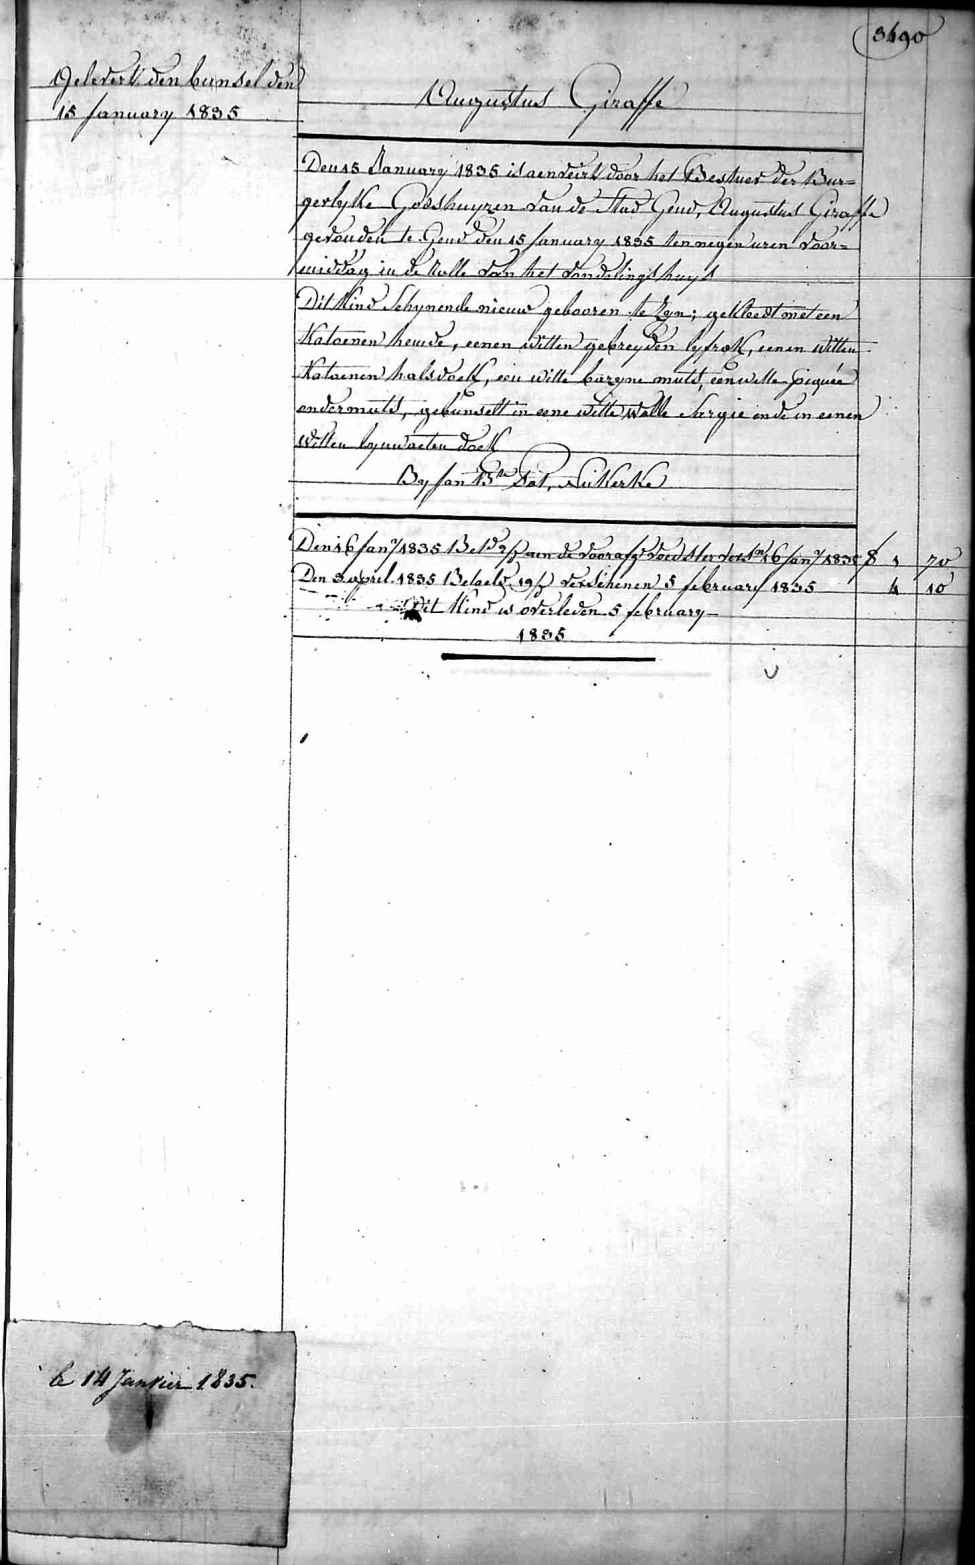 3490
Gelevert den bunsel den
15 January 1835
Augustus Giraffe
Den 15 January 1835 is aenveirt door het Bestuer der Bur=
gerlyke Godshuyzen van de Stad Gend, Augustus Giraffe
gevonden te Gend den 15 January 1835 ten negen uren voor=
middag in de Rolle van het vondelingshuys
Dit Kind Schynende nieuw gebooren te Zyn; gekleedt met een
Katoenen hemde, eenen Witten gebreyden lyfrok, eenen Witten
Katoenen halsdoek, een witte bazyne muts, een witte piquée
ondermuts, gebunselt in eene Witte Wolle Sargie ende in eenen
Witten lynwaeten doek
By Jan Bte Nukerke
Den 16 Jany 1835 aen de voedster 16 Jany 1835 1 70
Den 3 april 1835 Betaelt verschenen 5 february 1835 4 10
Dit Kind is overleden 5 february
1835
le 14 Janvier 1835.